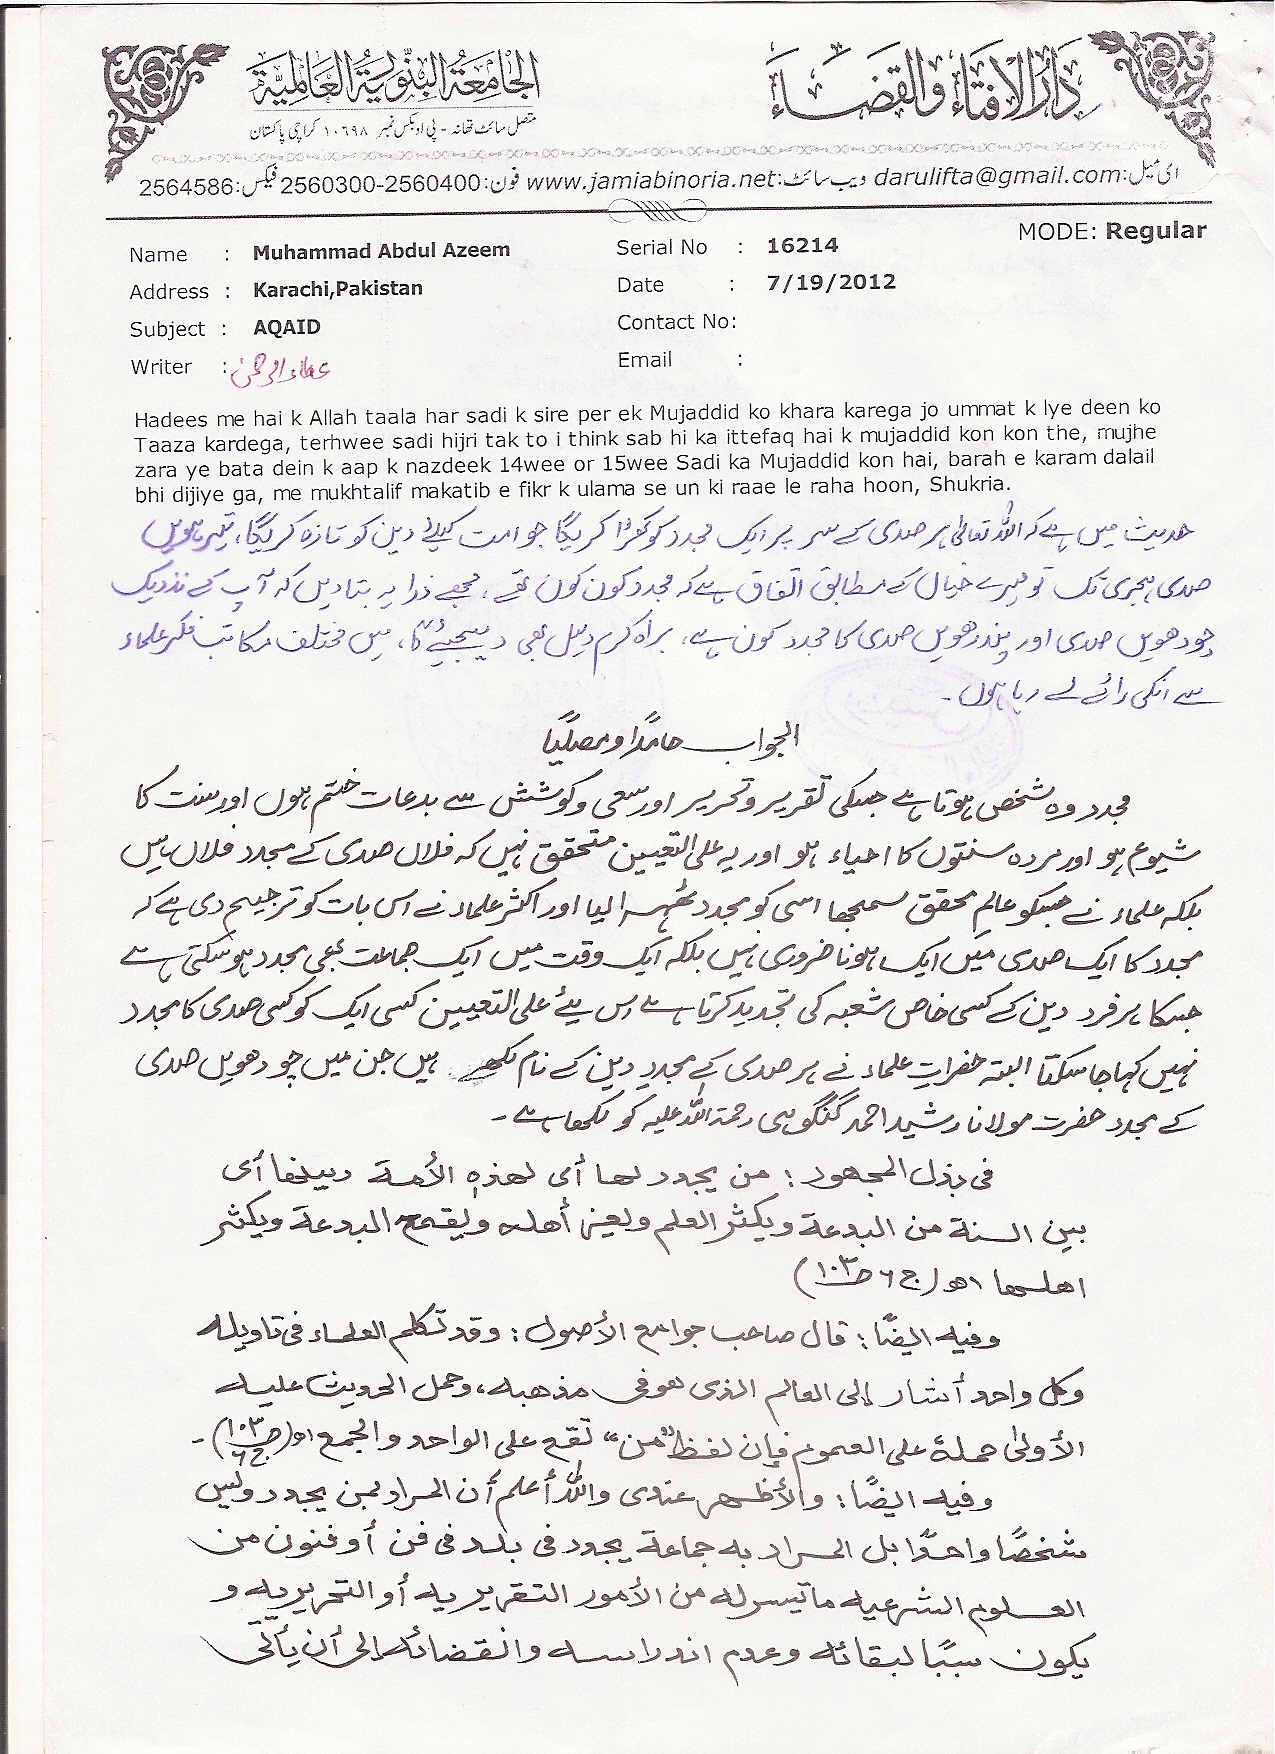 دارالافتاء والقضاء
الجامعة البنورية العالمية
متصل سائٹ تھانہ - پی او بکس نمبر ۱۰۶۹۸ کراچی پاکستان
ای میل:darulifta@gmail.com ویب سائٹ:www.jamiabinoria.net فون:2560300-2560400 فیکس:2564586
MODE: Regular
Name : Muhammad Abdul Azeem Serial No : 16214
Address : Karachi,Pakistan Date : 7/19/2012
Subject : AQAID Contact No:
Writer : Email :
Hadees me hai k Allah taala har sadi k sire per ek Mujaddid ko khara karega jo ummat k lye deen ko
Taaza kardega, terhwee sadi hijri tak to i think sab hi ka ittefaq hai k mujaddid kon kon the, mujhe
zara ye bata dein k aap k nazdeek 14wee or 15wee Sadi ka Mujaddid kon hai, barah e karam dalail
bhi dijiye ga, me mukhtalif makatib e fikr k ulama se un ki raae le raha hoon, Shukria.
حدیث میں ہے کہ اللہ تعالیٰ ہر صدی کے سر پر ایک مجدد کو کھڑا کریگا جو امت کیلئے دین کو تازہ کریگا، تیرہویں
صدی ہجری تک تو میرے خیال کے مطابق اتفاق ہے کہ مجدد کون کون تھے، مجھے ذرا یہ بتا دیں کہ آپ کے نزدیک
چودھویں صدی اور پندرھویں صدی کا مجدد کون ہے، براہ کرم دلیل بھی دیجیئے گا، میں مختلف مکاتب فکر علماء
سے انکی رائے لے رہا ہوں۔
الجواب حامدًا ومصلّیًا
مجدد وہ شخص ہوتا ہے جسکی تقریر و تحریر اور سعی و کوشش سے بدعات ختم ہوں اور سنت کا
شیوع ہو اور مردہ سنتوں کا احیاء ہو اور یہ علی التعیین متحقق نہیں کہ فلاں صدی کے مجدد فلاں ہیں
بلکہ علماء نے جسکو عالم محقق سمجھا اسی کو مجدد ٹھہرا لیا اور اکثر علماء نے اس بات کو ترجیح دی ہے کہ
مجدد کا ایک صدی میں ایک ہونا ضروری نہیں بلکہ ایک وقت میں ایک جماعت بھی مجدد ہو سکتی ہے
جسکا ہر فرد دین کے کسی خاص شعبہ کی تجدید کرتا ہے اس لیئے علی التعیین کسی ایک کو کسی صدی کا مجدد
نہیں کہا جا سکتا البتہ حضراتِ علماء نے ہر صدی کے مجددِ دین کے نام لکھے ہیں جن میں چودھویں صدی
کے مجدد حضرت مولانا رشید احمد گنگوہی رحمۃ اللہ علیہ کو لکھا ہے۔
فی بذل المجهود: من یجدد لها أی لهذه الأمة دینها أی
یبین السنة من البدعة ویکثر العلم ویعز أهله ویقمع البدعة ویکثر
اهلها اھ (ج ٦ ص ١٠٣)
وفیه ایضًا: قال صاحب جوامع الأصول: وقد تکلم العلماء فی تاویله
وکل واحد أشار إلی العالم الذی هو فی مذهبه، وحمل الحدیث علیه
الأولیٰ حمله علی العموم فإن لفظ "من" تقع علی الواحد والجمع اھ (ص ١٠٣ ج ٦)۔
وفیه ایضًا: والأظهر عندی والله أعلم أن المراد بمن یجدد ولیس
شخصًا واحدًا بل المراد به جماعة یجدد فی بلد فی فن أو فنون من
العلوم الشرعیه ما تیسر له من الأمور التقریریه أو التحریریه و
یکون سببًا لبقائه وعدم اندراسه وانقضائه إلی أن یأتی